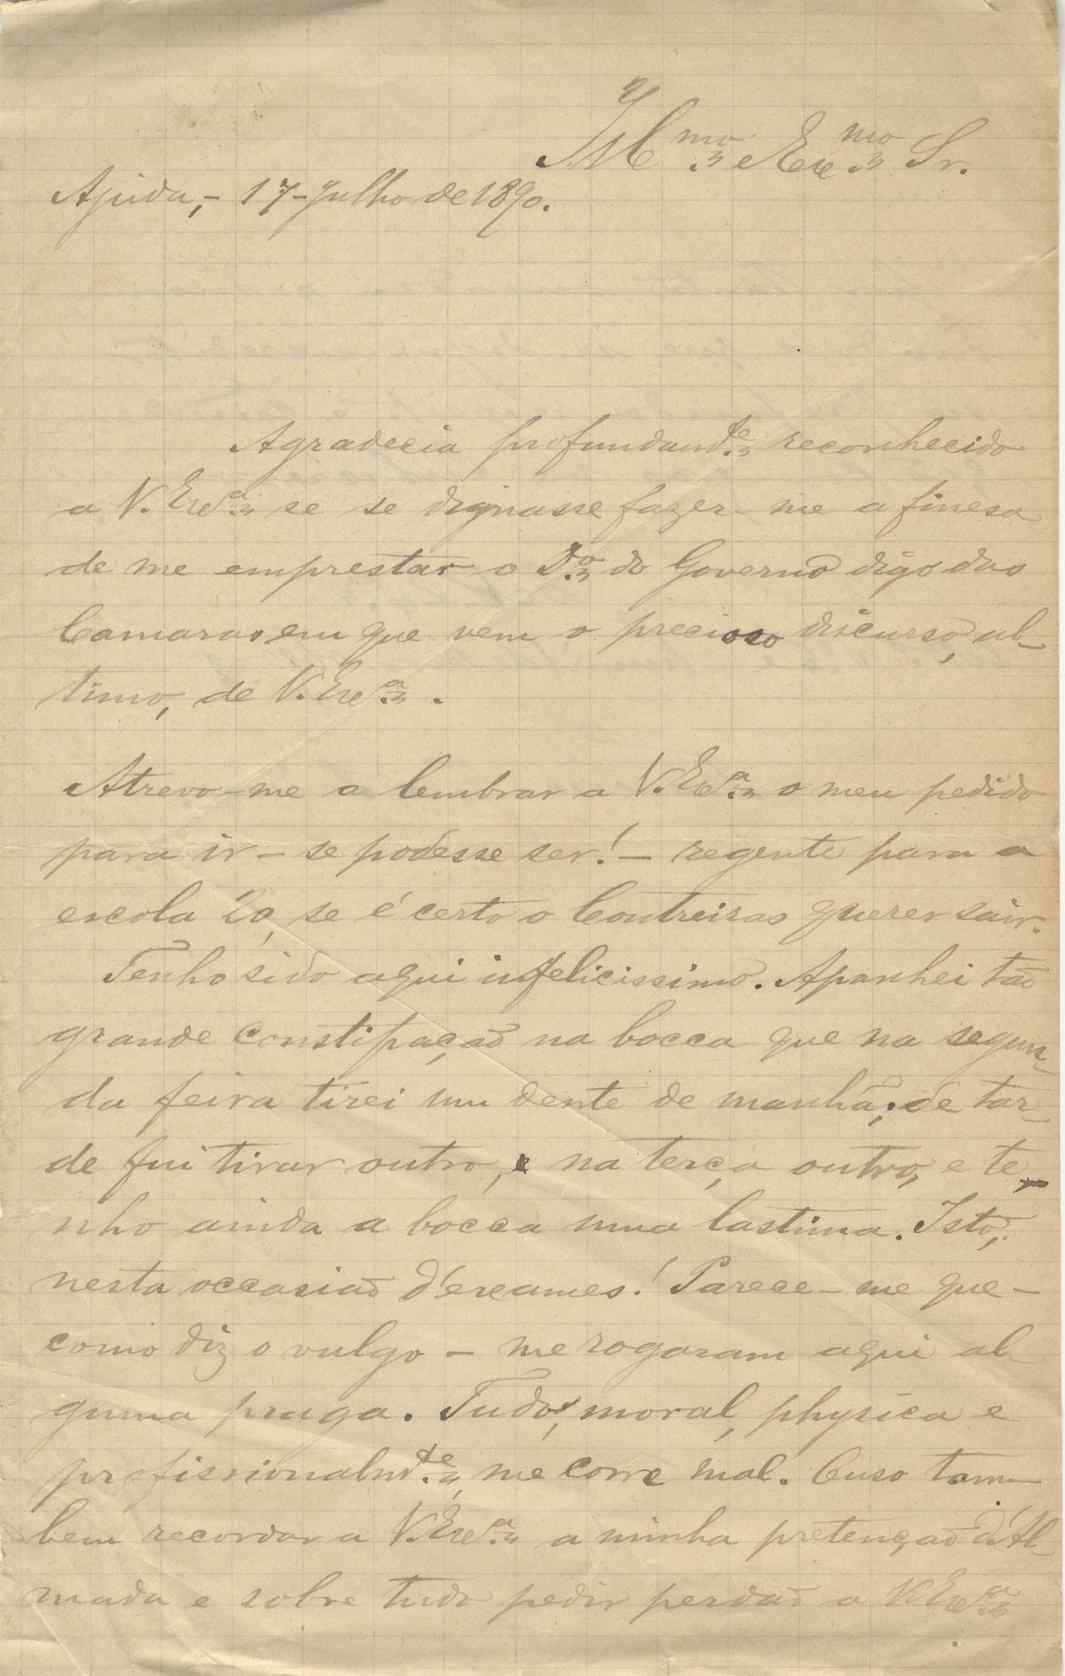 Ill.mo e Exc.mo Sr.
Ajuda, - 17 - Julho de 1890.
Agradecia profundam.te reconhecido
a V. Exc.a se se dignasse fazer-me a finesa
de me emprestar o D.o do Governo digo das
Camaras em que vem o precioso discurso, ul-
timo, de V. Exc.a.
Atrevo-me a lembrar a V. Exc.a o meu pedido
para ir - se podesse ser! - regente para a
escola 20, se é certo o Contreiras querer sair.
Tenho sido aqui infelicissimo. Apanhei tão
grande constipação na bocca que na segun-
da feira tirei um dente de manhã; de tar-
de fui tirar outro, e na terça outro, e te-
nho ainda a bocca uma lastima. Isto,
nesta occasião d'exames! Parece-me que -
como diz o vulgo - me rogaram aqui al-
guma praga. Tudo, moral, physica e
profissionalm.te, me corre mal. Ouso tam-
bem recordar a V. Exc.a a minha pretenção d'Al-
mada e sobre tudo pedir perdão a V. Exc.a